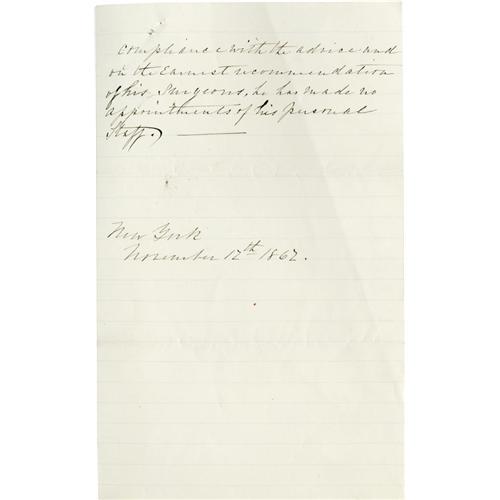 compliance with the advice and
on the Earnest recommendation
of his Surgeons, he has made no
appointments of his personal
Staff.)
New York
November 12th 1862.